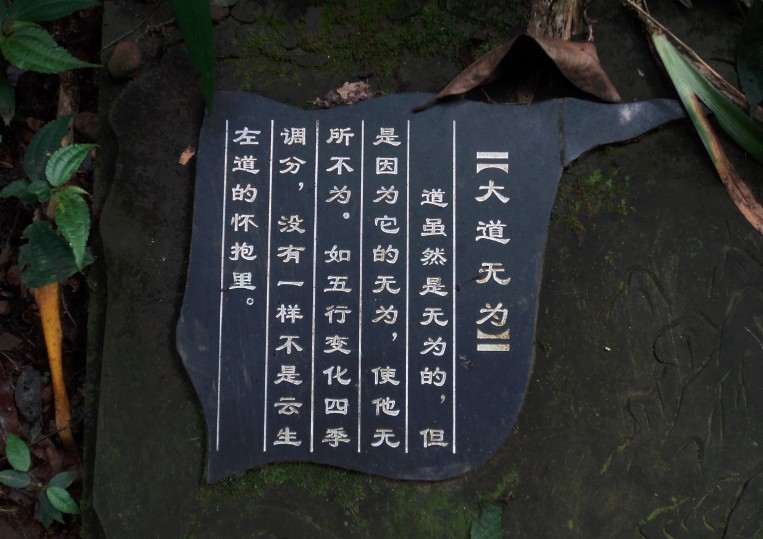 【大道无为】
道虽然是无为的，但
是因为它的无为，使他无
所不为。如五行变化四季
调分，没有一样不是云生
左道的怀抱里。